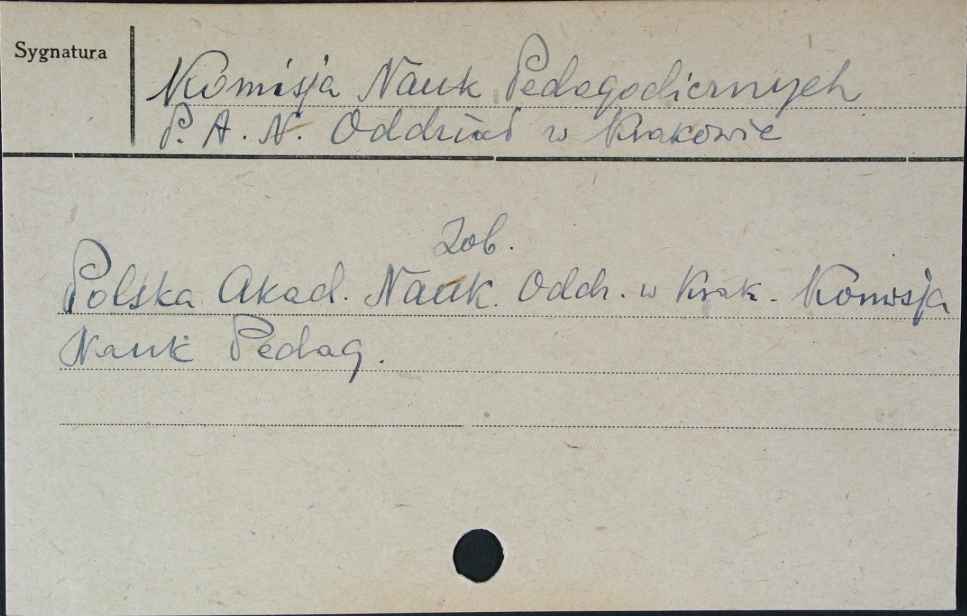 Sygnatura
Komisja Nauk Pedagogicznych
P. A. N. Oddział w Krakowie
Zob.
Polska Akad. Nauk. Oddz. w Krak. Komisja
Nauk Pedag.